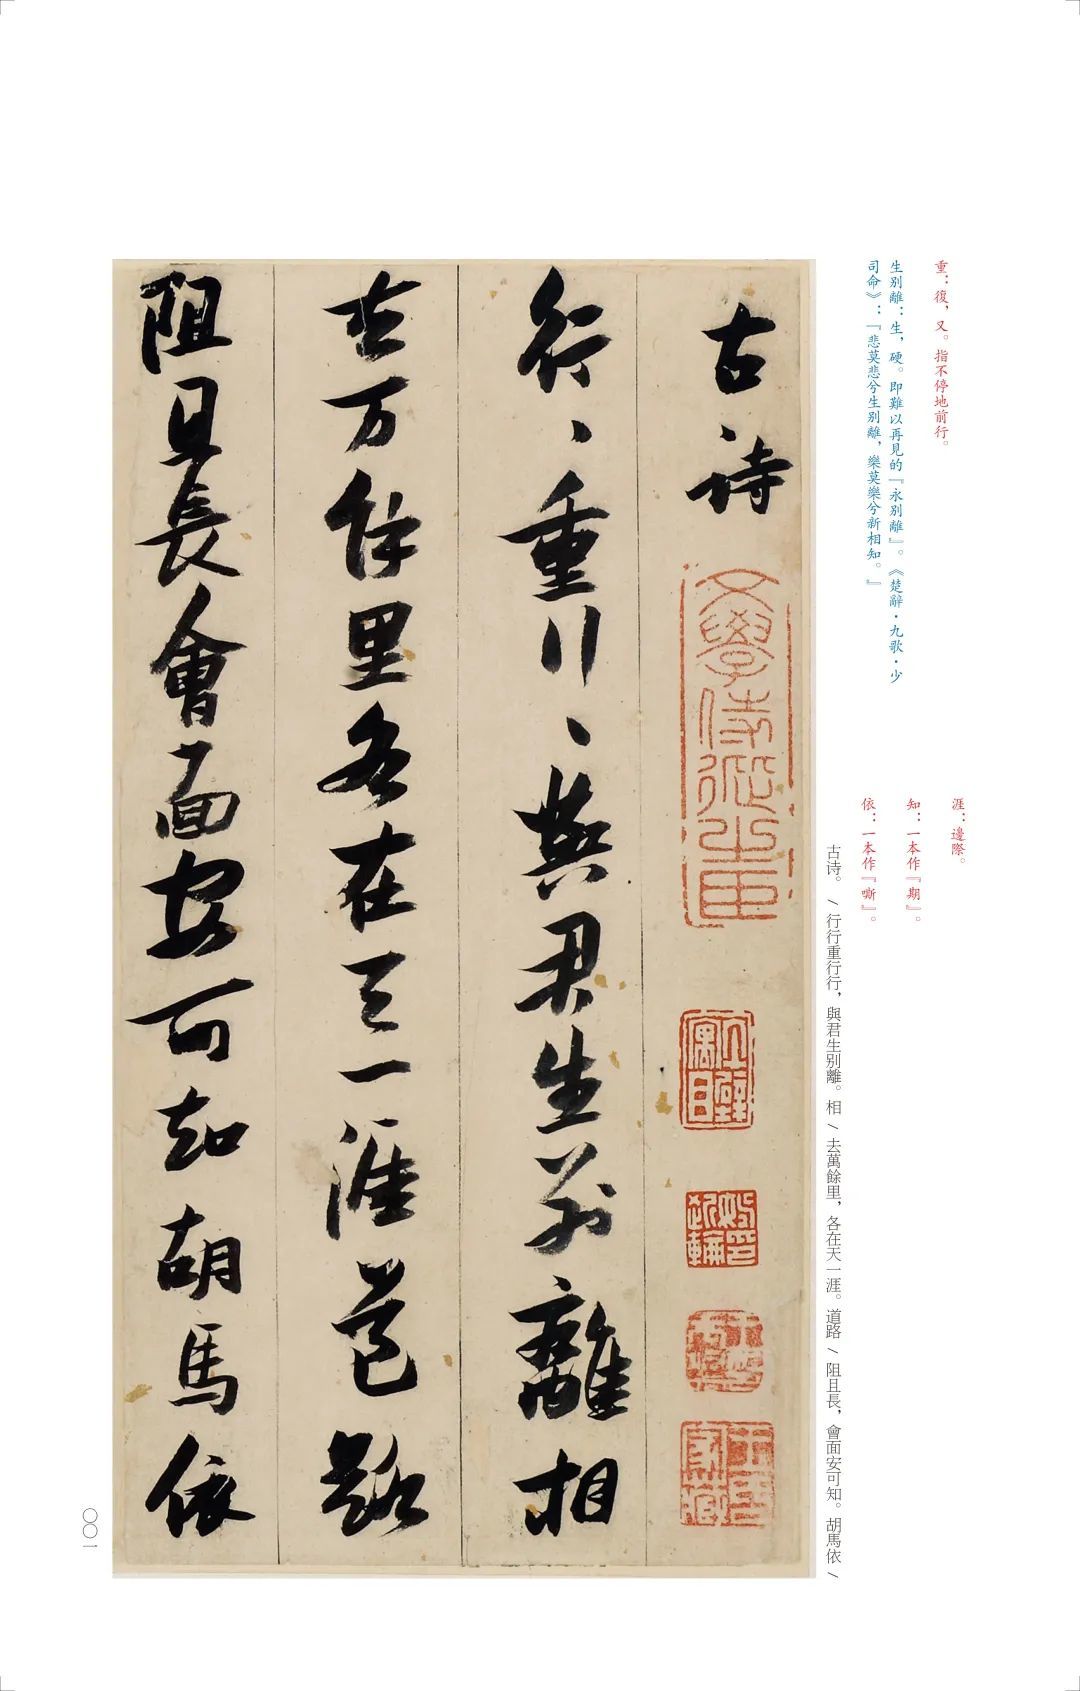 重：復，又。指不停地前行。
生別離：生，硬。即難以再見的『永別離』。《楚辭·九歌·少
司命》：『悲莫悲兮生別離，樂莫樂兮新相知。』
涯：邊際。
知：一本作『期』。
依：一本作『嘶』。
古诗。/行行重行行，與君生別離。相/去萬餘里，各在天一涯。道路/阻且長，會面安可知。胡馬依/
古诗
行、重行、與君生别離相
去万餘里各在天一涯道路
阻且長會面安可知胡馬依
〇〇一